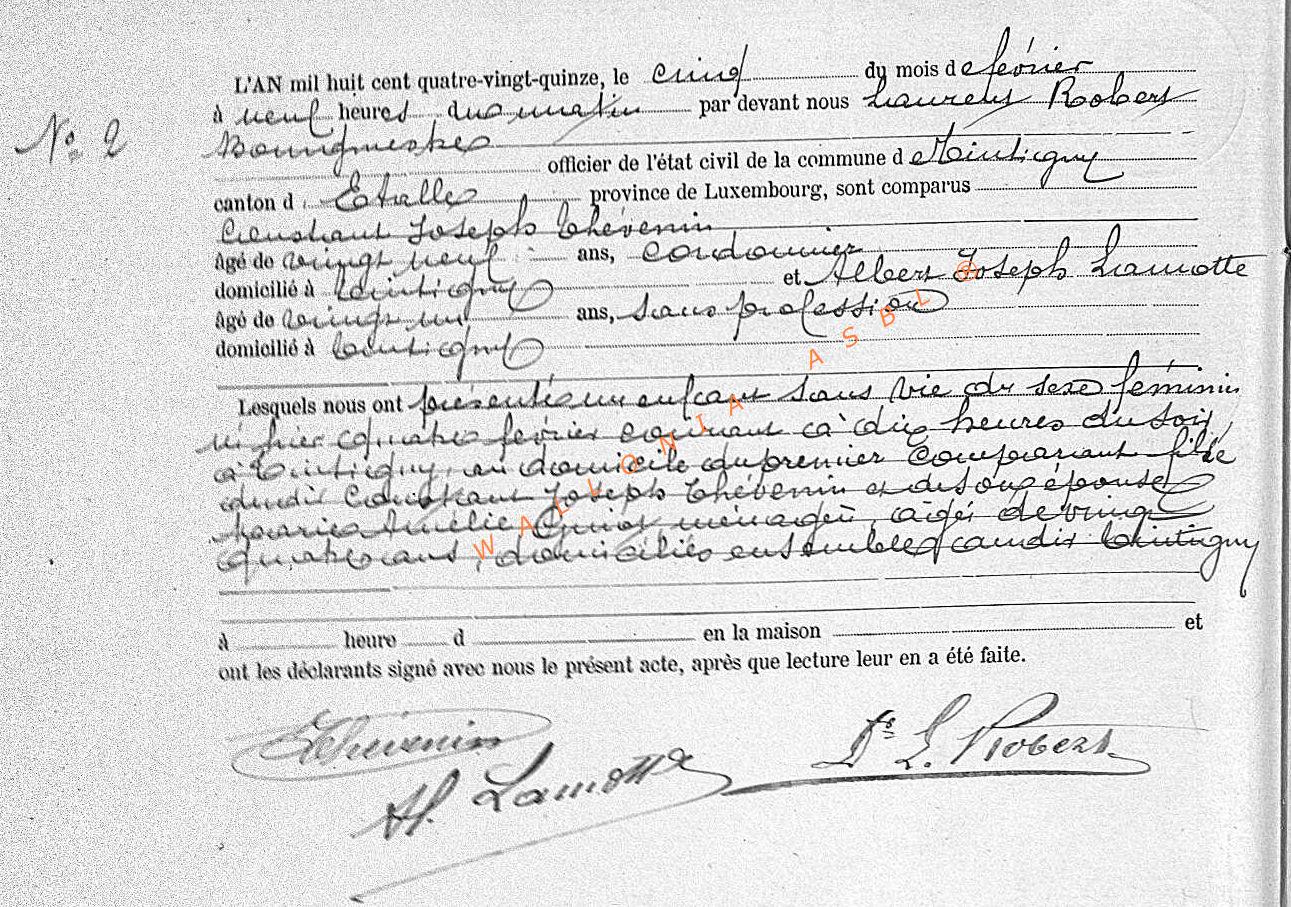 L'AN mil huit cent quatre-vingt-quinze, le cinq du mois de février
à neuf heures du matin par devant nous Laurent Robert
No 2
Bourgmestre
officier de l'état civil de la commune de Tintigny
canton d'Etalle province de Luxembourg, sont comparus
Constant Joseph Thévenin
âgé de vingt neuf ans, cordonnier
domicilié à Tintigny et Albert Joseph Lamotte
âgé de vingt un ans, sans profession
domicilié à Tintigny
Lesquels nous ont présenté un enfant sans vie du sexe féminin
né hier quatre février courant à dix heures du soir,
à Tintigny, au domicile du premier comparant fille
dudit Constant Joseph Thévenin et de son épouse
Marie Amélie ménagère, âgée de vingt
quatre ans, domiciliés ensemble audit Tintigny
à heure d en la maison et
ont les déclarants signé avec nous le présent acte, après que lecture leur en a été faite.
Thévenin
Al. Lamotte
Dr L. Robert
WALLONIA ASBL ®